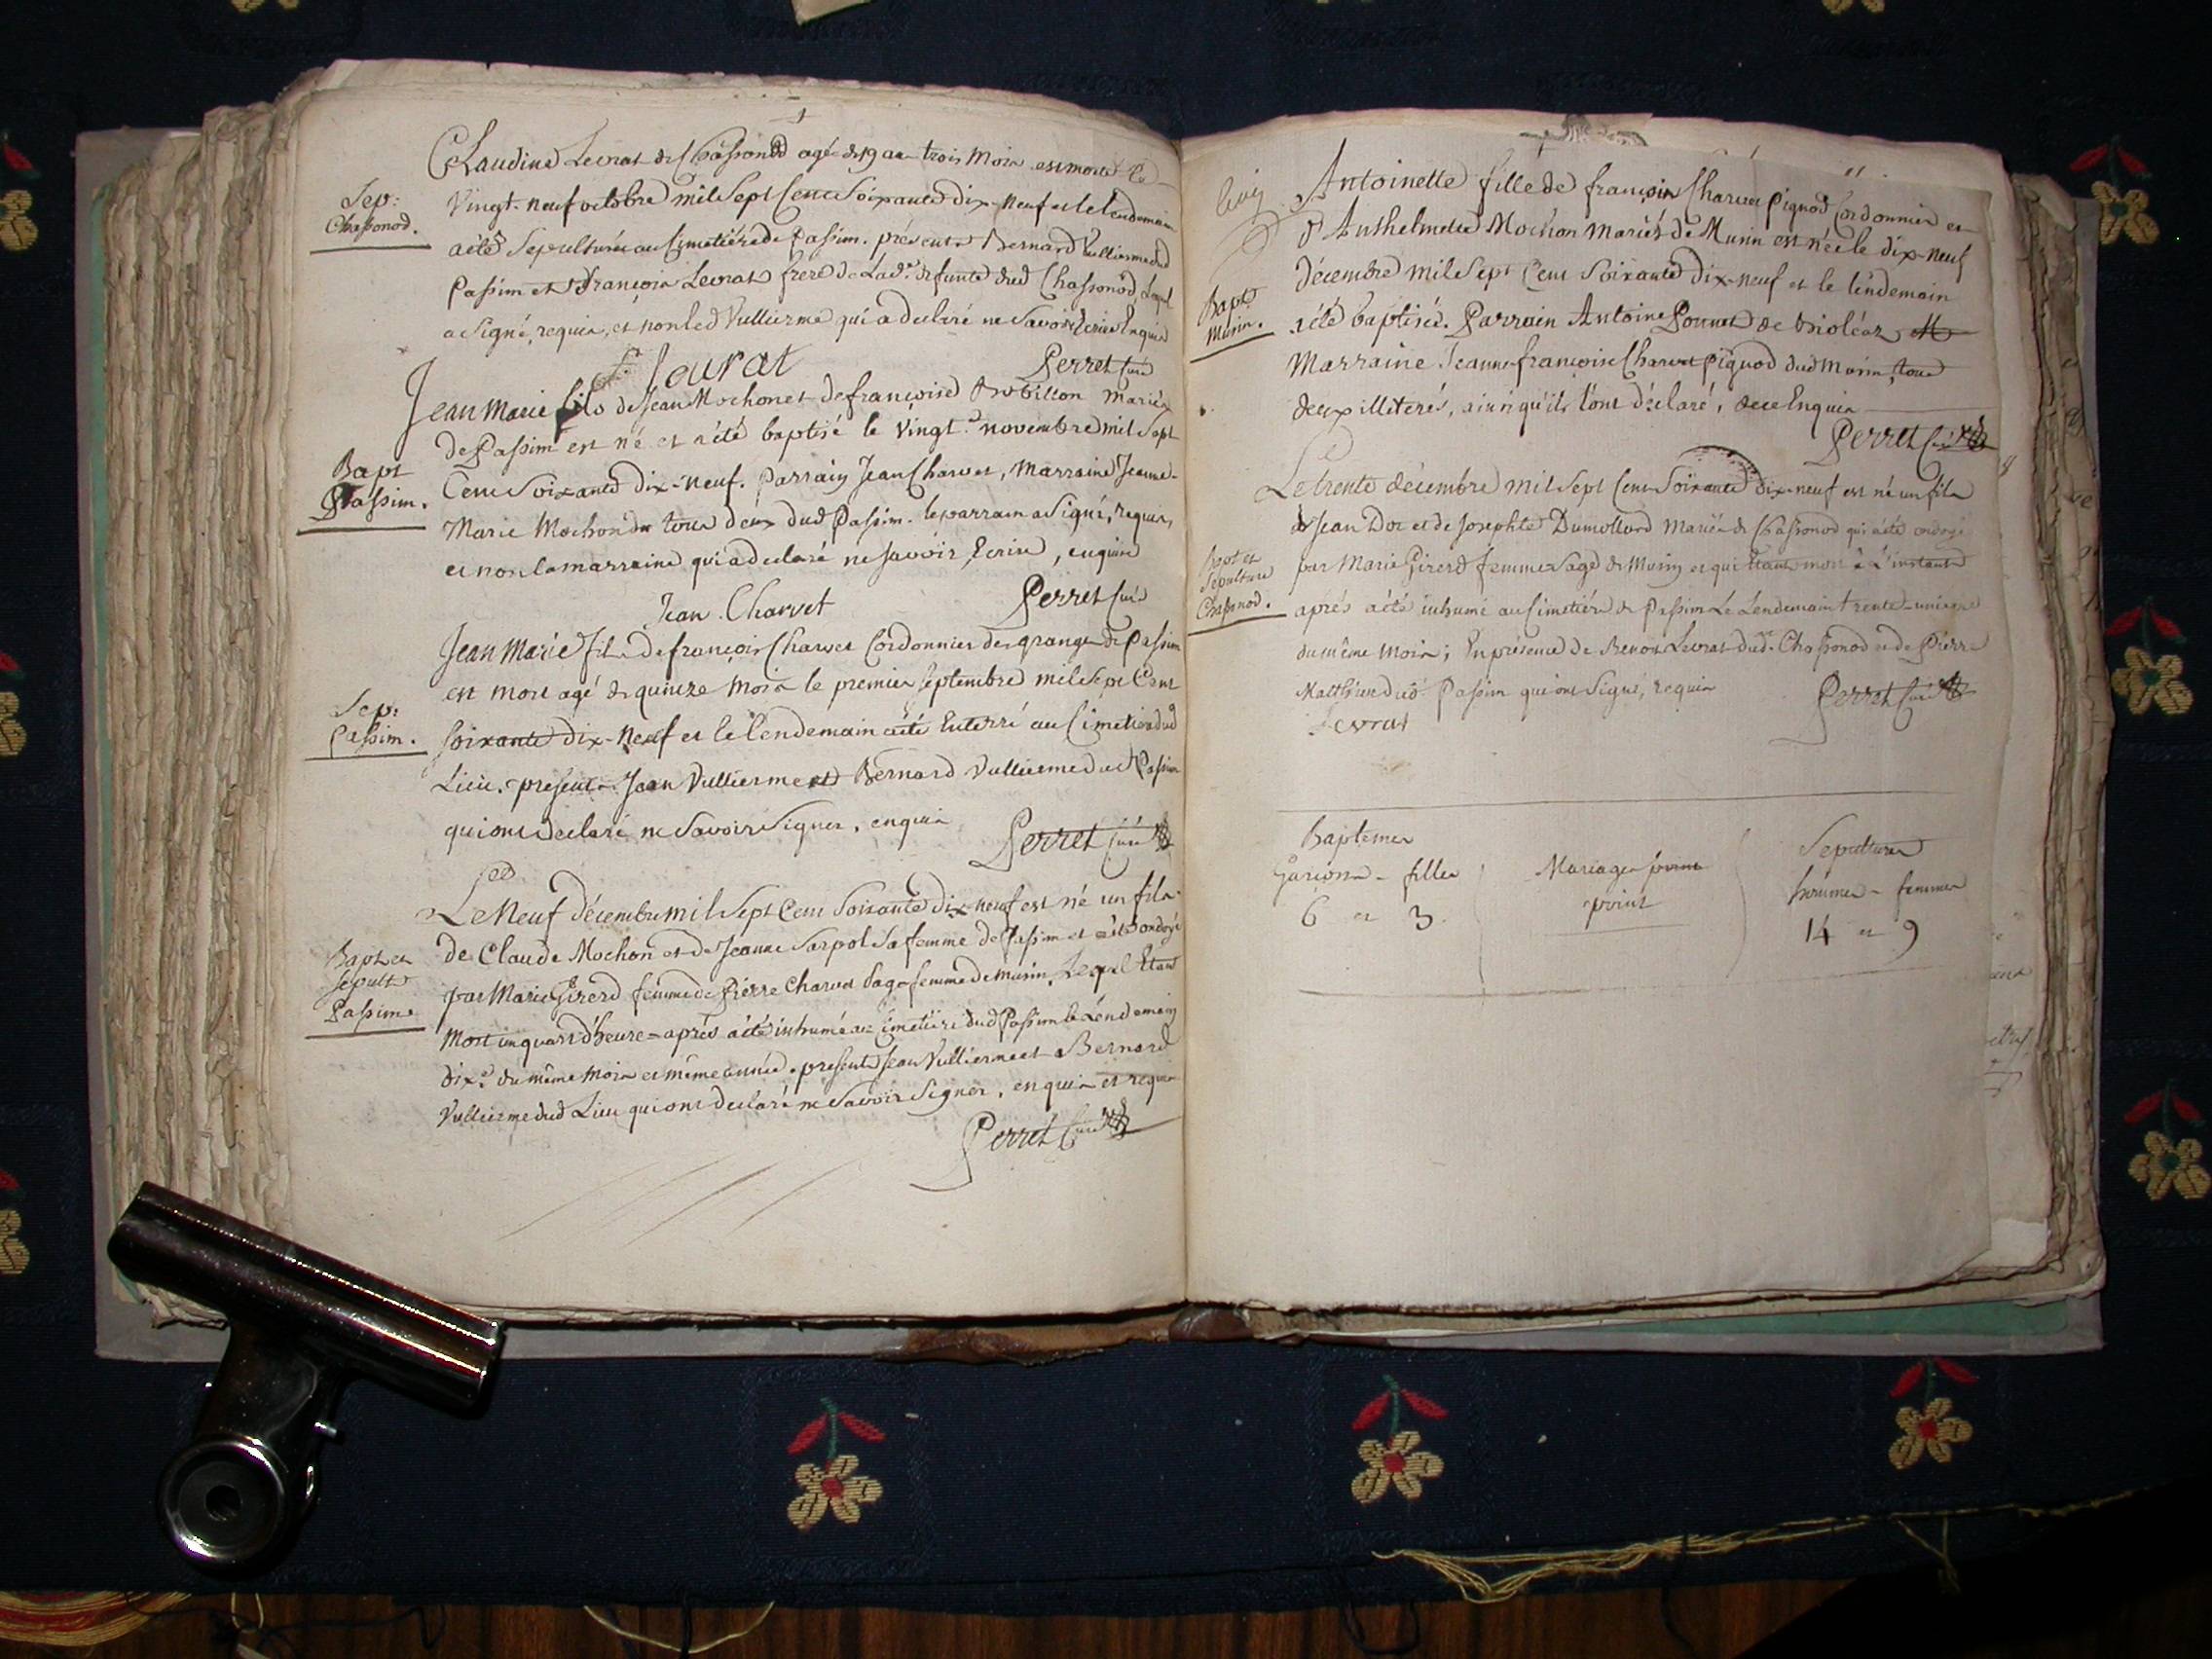 Claudine Levrat de Chassonod agé de 19 ans trois mois est morte le
Sep:
Chassonod.
vingt-neuf octobre mil sept cent soixante dix-neuf et le lendemain
a été sepulturée au Cimetière de Passim. présents Bernard Vullierme dud
Passim et François Levrat frere de Lad.e defunte dud Chassonod, Lequel
a signé, requis, et non led Vullierme qui a declaré ne savoir Ecrire Enquis
f. Levrat
Perret Curé
Jean Marie fils de Jean Mochon et de françoise Robillon mariés
de Passim est né et a été baptisé le vingt.e novembre mil sept
Bapt
Passim.
Cent Soixante dix-neuf. parrain Jean Charvet, Marraine Jeanne-
Marie Mochon tous deux dud Passim. le parrain a Signé, requis,
et non la marraine qui a declaré ne savoir Ecrire, enquise
Jean Charvet
Perret Curé
Jean Marie fils de françois Charvet Cordonnier des granges de Passim
est mort agé de quinze mois le premier septembre mil sept Cent
Sep:
Passim.
soixante dix-neuf et le lendemain a été Enterré au Cimetière dud
Lieu. presents Jean Vullierme et Bernard Vullierme dud Passim
qui ont declaré ne savoir signer, enquis
Perret Curé
Le Neuf décembre mil sept Cent soixante dix-neuf est né un fils
de Claude Mochon et de Jeanne Sarpol sa femme de Passim et a été ondoyé
Bapt et
sepult
Passim.
par Marie Girerd femme de Pierre Charvet sage femme de Murin, Lequel Etant
Mort un quart d'heure après a été inhumé au Cimetière dud Passim le Lendemain
dix.e du même mois et même année. presents Jean Vullierme et Bernard
Vullierme dud Lieu qui ont declaré ne savoir signer, enquis et requis
Perret Curé
Antoinette fille de françois Charvet Pignod Cordonnier et
d'Anthelmette Mochon mariés de Murin est née le dix-neuf
décembre mil sept Cent soixante dix-neuf et le lendemain
Bapt
Murin.
a été baptisée. Parrain Antoine Ponnet de brioléaz
Marraine Jeanne françoise Charvet Pignod dud Murin, tous
deux illiterés, ainsi qu'ils l'ont déclaré, de ce Enquis
Perret Curé
Le trente décembre mil sept Cent Soixante dix-neuf est né un fils
de Jean Doc et de Josephte Dumollard mariés de Chassonod qui a été ondoyé
Bapt et
sepulture
Chassonod.
par Marie Girerd femme sage de Murin et qui Etant mort à L'instant
après a été inhumé au Cimetière de Passim Le Lendemain trente-unieme
du même mois; En présence de Benoit Levrat dud. Chassonod et de Pierre
Matthieu dud. Passim qui ont signé, requis
Perret Curé
Levrat
Baptemes
Garçons - filles
6 et 3
Mariages
point
Sepultures
hommes - femmes
14 et 9